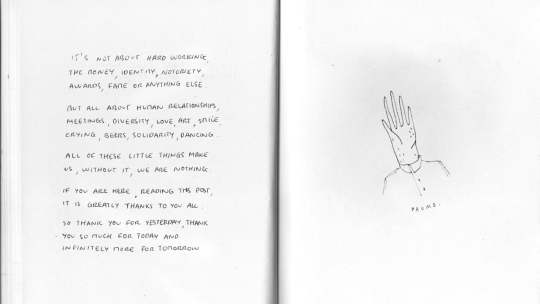 IT'S NOT ABOUT HARD WORKING,
THE MONEY, IDENTITY, NOTORIETY,
AWARDS, FAME OR ANYTHING ELSE
BUT ALL ABOUT HUMAN RELATIONSHIPS,
MEETINGS, DIVERSITY, LOVE, ART, SMILE,
CRYING, BEERS, SOLIDARITY, DANCING.
ALL OF THESE LITTLE THINGS MAKE
US, WITHOUT IT, WE ARE NOTHING.
IF YOU ARE HERE, READING THIS POST,
IT IS GREATLY THANKS TO YOU ALL.
SO THANK YOU FOR YESTERDAY, THANK
YOU SO MUCH FOR TODAY AND
INFINITELY MORE FOR TOMORROW